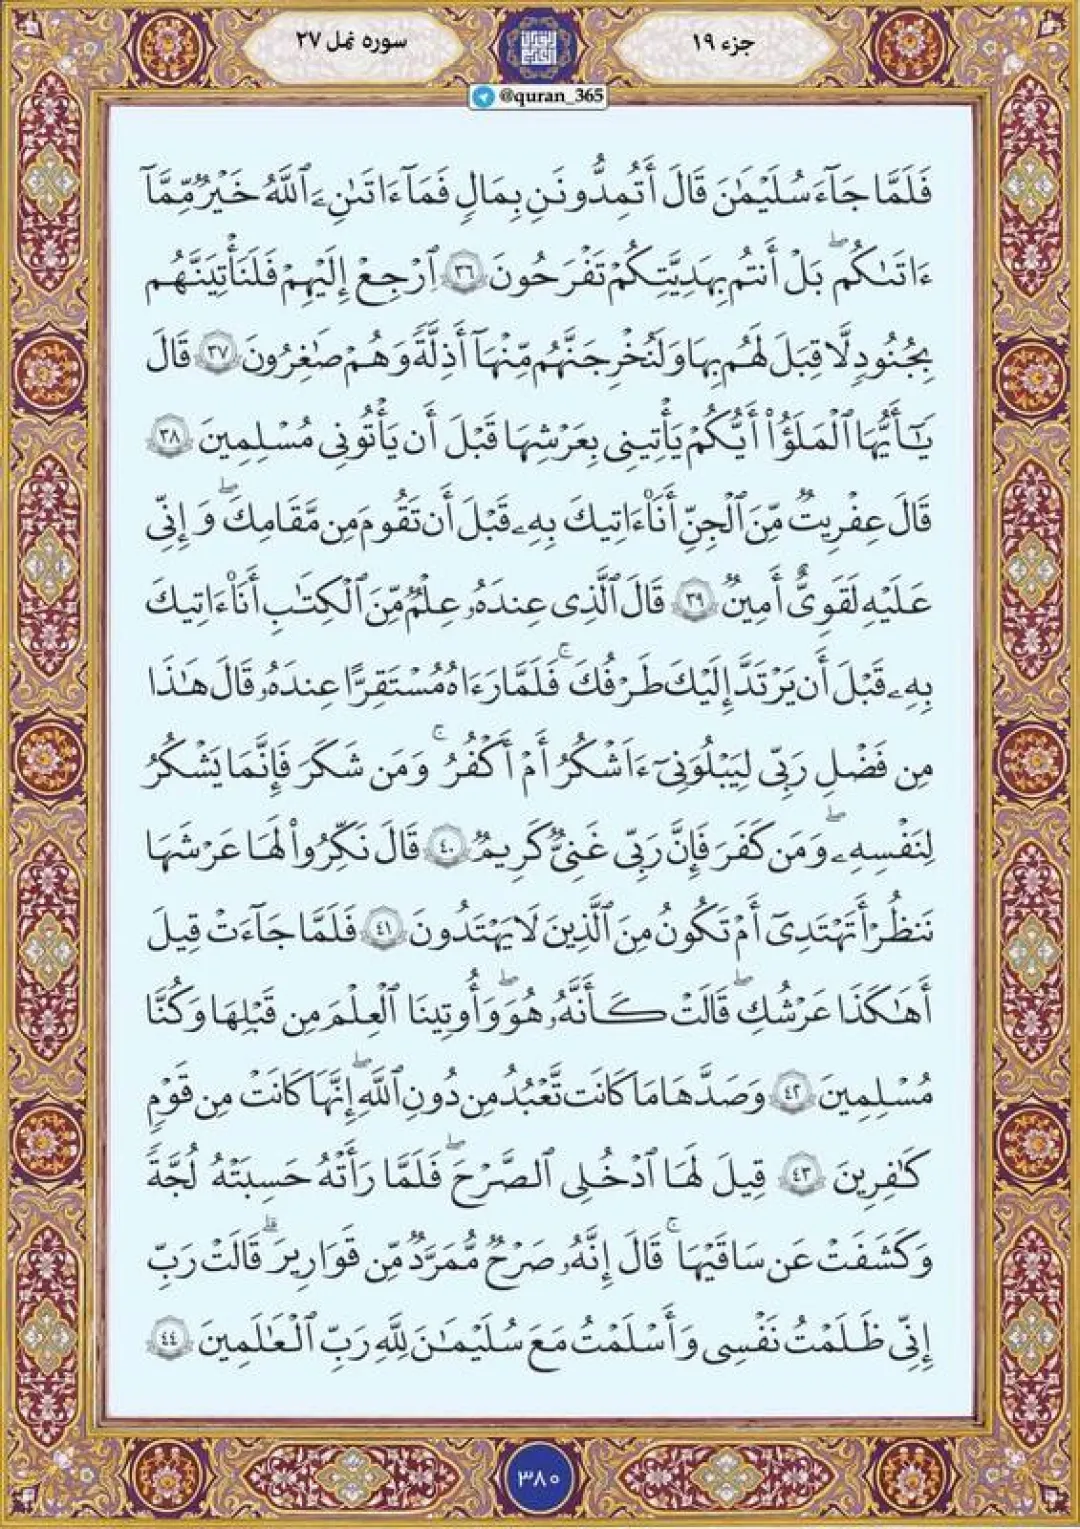 جزء ۱۹
سوره نمل ۲۷
@quran_365
فَلَمَّا جَآءَ سُلَيْمَٰنَ قَالَ أَتُمِدُّونَنِ بِمَالٍ فَمَآ ءَاتَىٰنِۦَ ٱللَّهُ خَيْرٌ مِّمَّآ
ءَاتَىٰكُمۖ بَلْ أَنتُم بِهَدِيَّتِكُمْ تَفْرَحُونَ ٣٦ ٱرْجِعْ إِلَيْهِمْ فَلَنَأْتِيَنَّهُم
بِجُنُودٍ لَّا قِبَلَ لَهُم بِهَا وَلَنُخْرِجَنَّهُم مِّنْهَآ أَذِلَّةً وَهُمْ صَٰغِرُونَ ٣٧ قَالَ
يَٰٓأَيُّهَا ٱلْمَلَؤُا۟ أَيُّكُمْ يَأْتِينِى بِعَرْشِهَا قَبْلَ أَن يَأْتُونِى مُسْلِمِينَ ٣٨
قَالَ عِفْرِيتٌ مِّنَ ٱلْجِنِّ أَنَا۠ ءَاتِيكَ بِهِۦ قَبْلَ أَن تَقُومَ مِن مَّقَامِكَۖ وَإِنِّى
عَلَيْهِ لَقَوِىٌّ أَمِينٌ ٣٩ قَالَ ٱلَّذِى عِندَهُۥ عِلْمٌ مِّنَ ٱلْكِتَٰبِ أَنَا۠ ءَاتِيكَ
بِهِۦ قَبْلَ أَن يَرْتَدَّ إِلَيْكَ طَرْفُكَۚ فَلَمَّا رَءَاهُ مُسْتَقِرًّا عِندَهُۥ قَالَ هَٰذَا
مِن فَضْلِ رَبِّى لِيَبْلُوَنِىٓ ءَأَشْكُرُ أَمْ أَكْفُرُۚ وَمَن شَكَرَ فَإِنَّمَا يَشْكُرُ
لِنَفْسِهِۦۖ وَمَن كَفَرَ فَإِنَّ رَبِّى غَنِىٌّ كَرِيمٌ ٤٠ قَالَ نَكِّرُوا۟ لَهَا عَرْشَهَا
نَنظُرْ أَتَهْتَدِىٓ أَمْ تَكُونُ مِنَ ٱلَّذِينَ لَا يَهْتَدُونَ ٤١ فَلَمَّا جَآءَتْ قِيلَ
أَهَٰكَذَا عَرْشُكِۖ قَالَتْ كَأَنَّهُۥ هُوَۖ وَأُوتِينَا ٱلْعِلْمَ مِن قَبْلِهَا وَكُنَّا
مُسْلِمِينَ ٤٢ وَصَدَّهَا مَا كَانَت تَّعْبُدُ مِن دُونِ ٱللَّهِۖ إِنَّهَا كَانَتْ مِن قَوْمٍ
كَٰفِرِينَ ٤٣ قِيلَ لَهَا ٱدْخُلِى ٱلصَّرْحَۖ فَلَمَّا رَأَتْهُ حَسِبَتْهُ لُجَّةً
وَكَشَفَتْ عَن سَاقَيْهَاۚ قَالَ إِنَّهُۥ صَرْحٌ مُّمَرَّدٌ مِّن قَوَارِيرَۗ قَالَتْ رَبِّ
إِنِّى ظَلَمْتُ نَفْسِى وَأَسْلَمْتُ مَعَ سُلَيْمَٰنَ لِلَّهِ رَبِّ ٱلْعَٰلَمِينَ ٤٤
۳۸۰